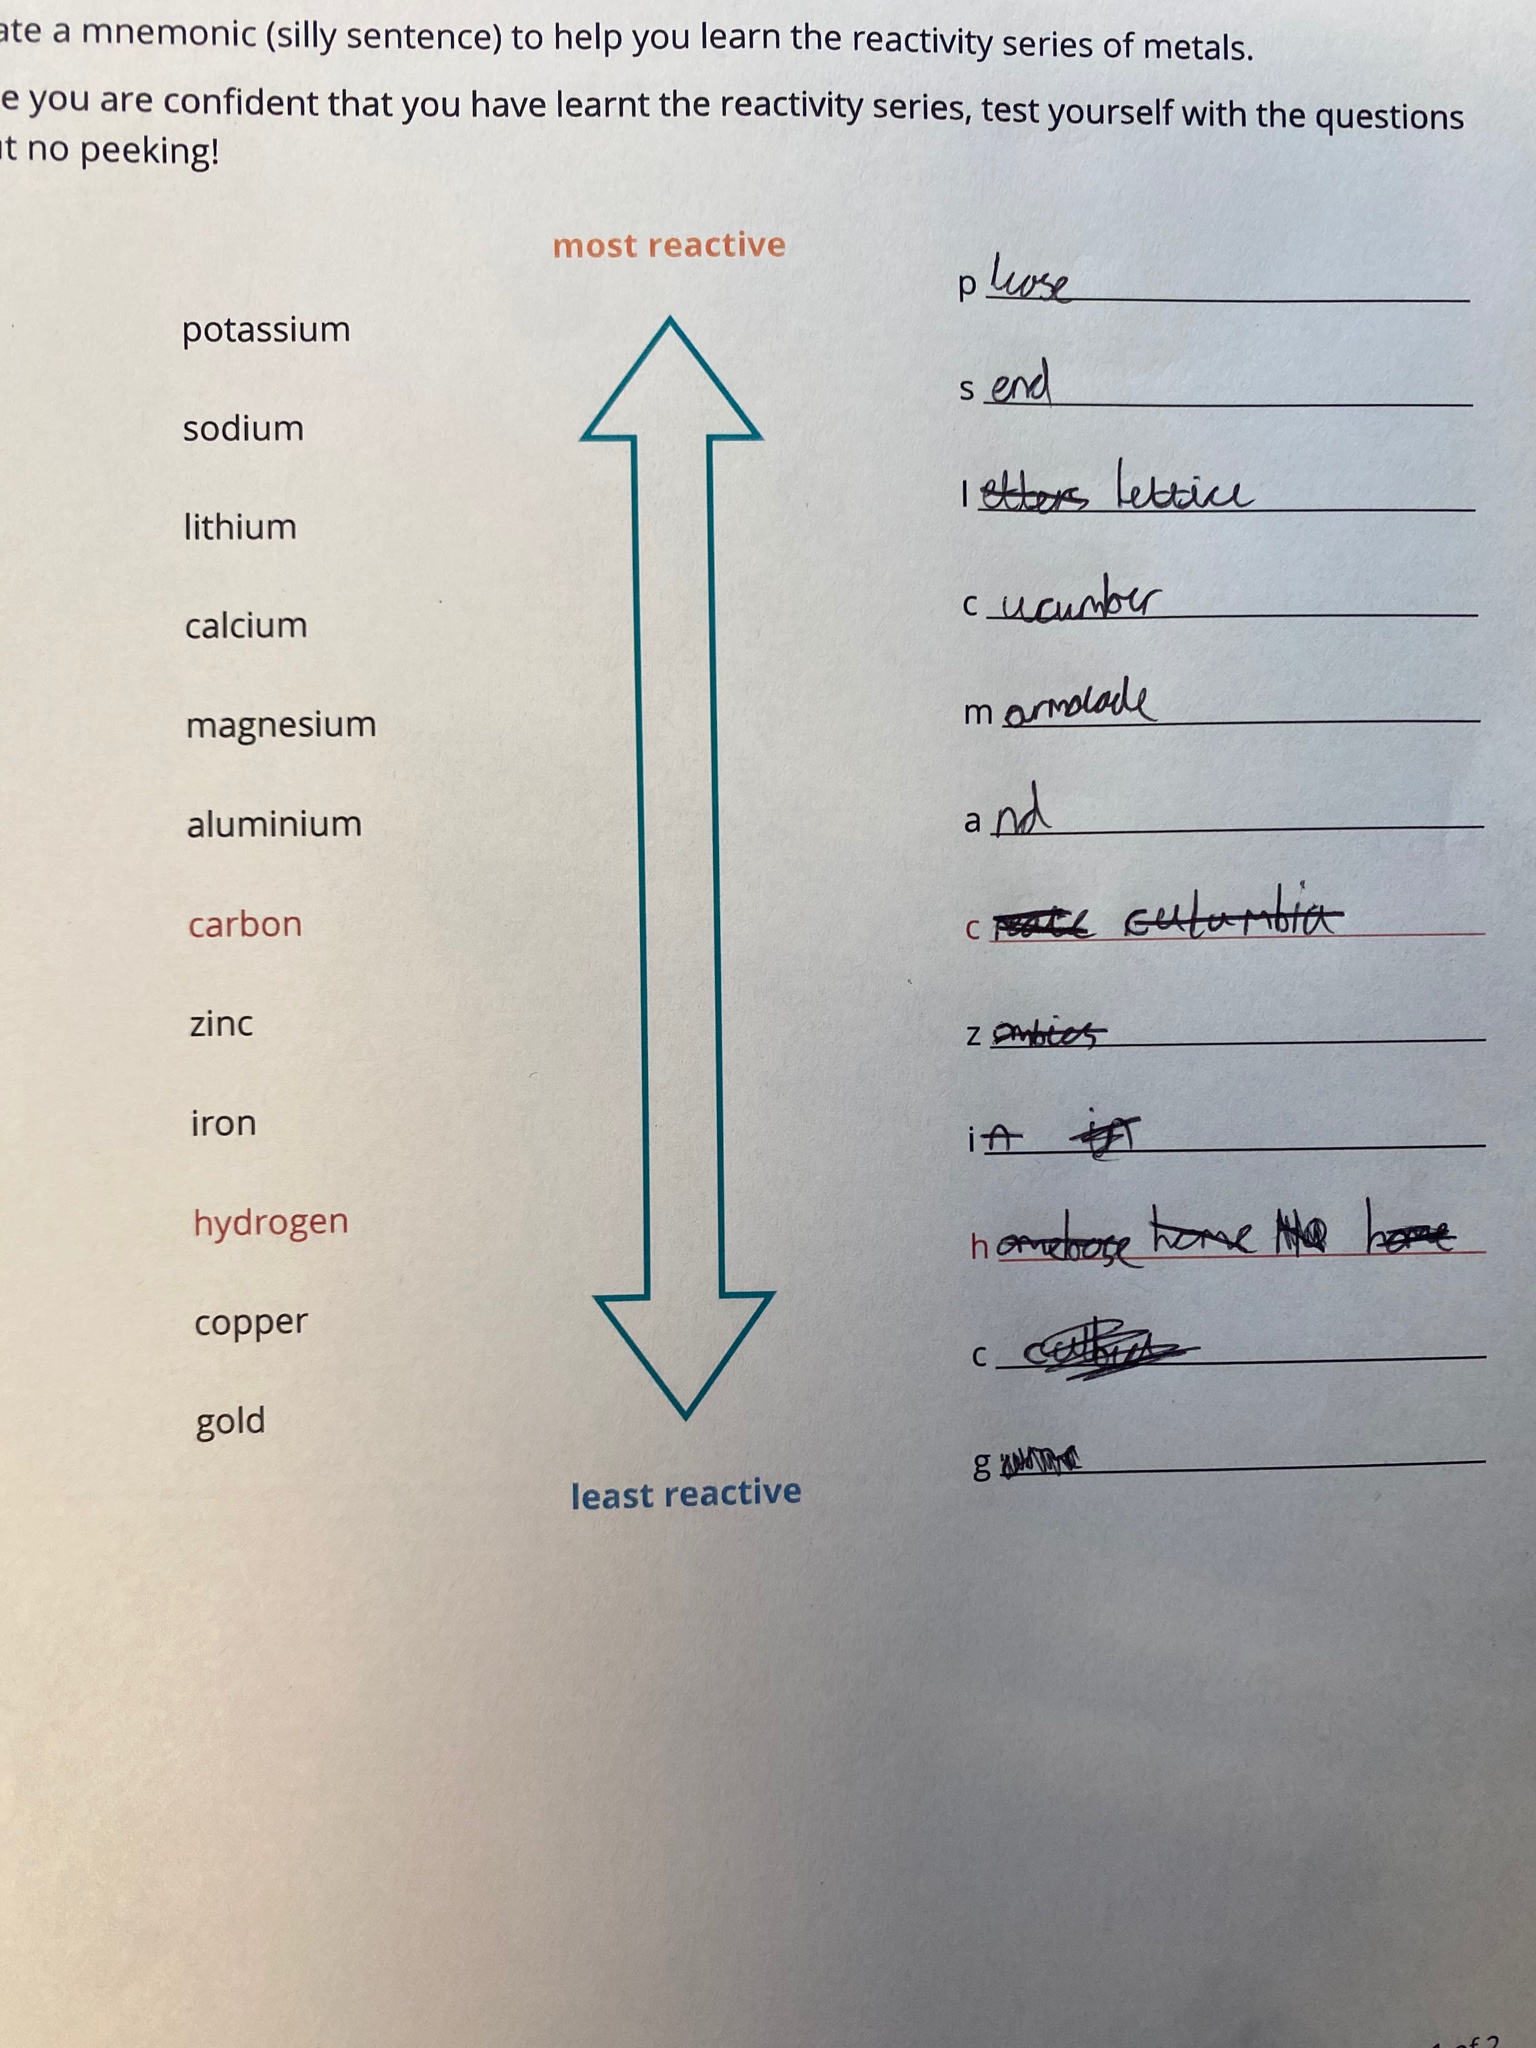 ate a mnemonic (silly sentence) to help you learn the reactivity series of metals.
e you are confident that you have learnt the reactivity series, test yourself with the questions
ut no peeking!
most reactive
potassium
sodium
lithium
calcium
magnesium
aluminium
carbon
zinc
iron
hydrogen
copper
gold
least reactive
please
send
letters lettice
cucumber
marmalade
and
c culumbia
zombies
in
homebase home home
c
g
1 of 2